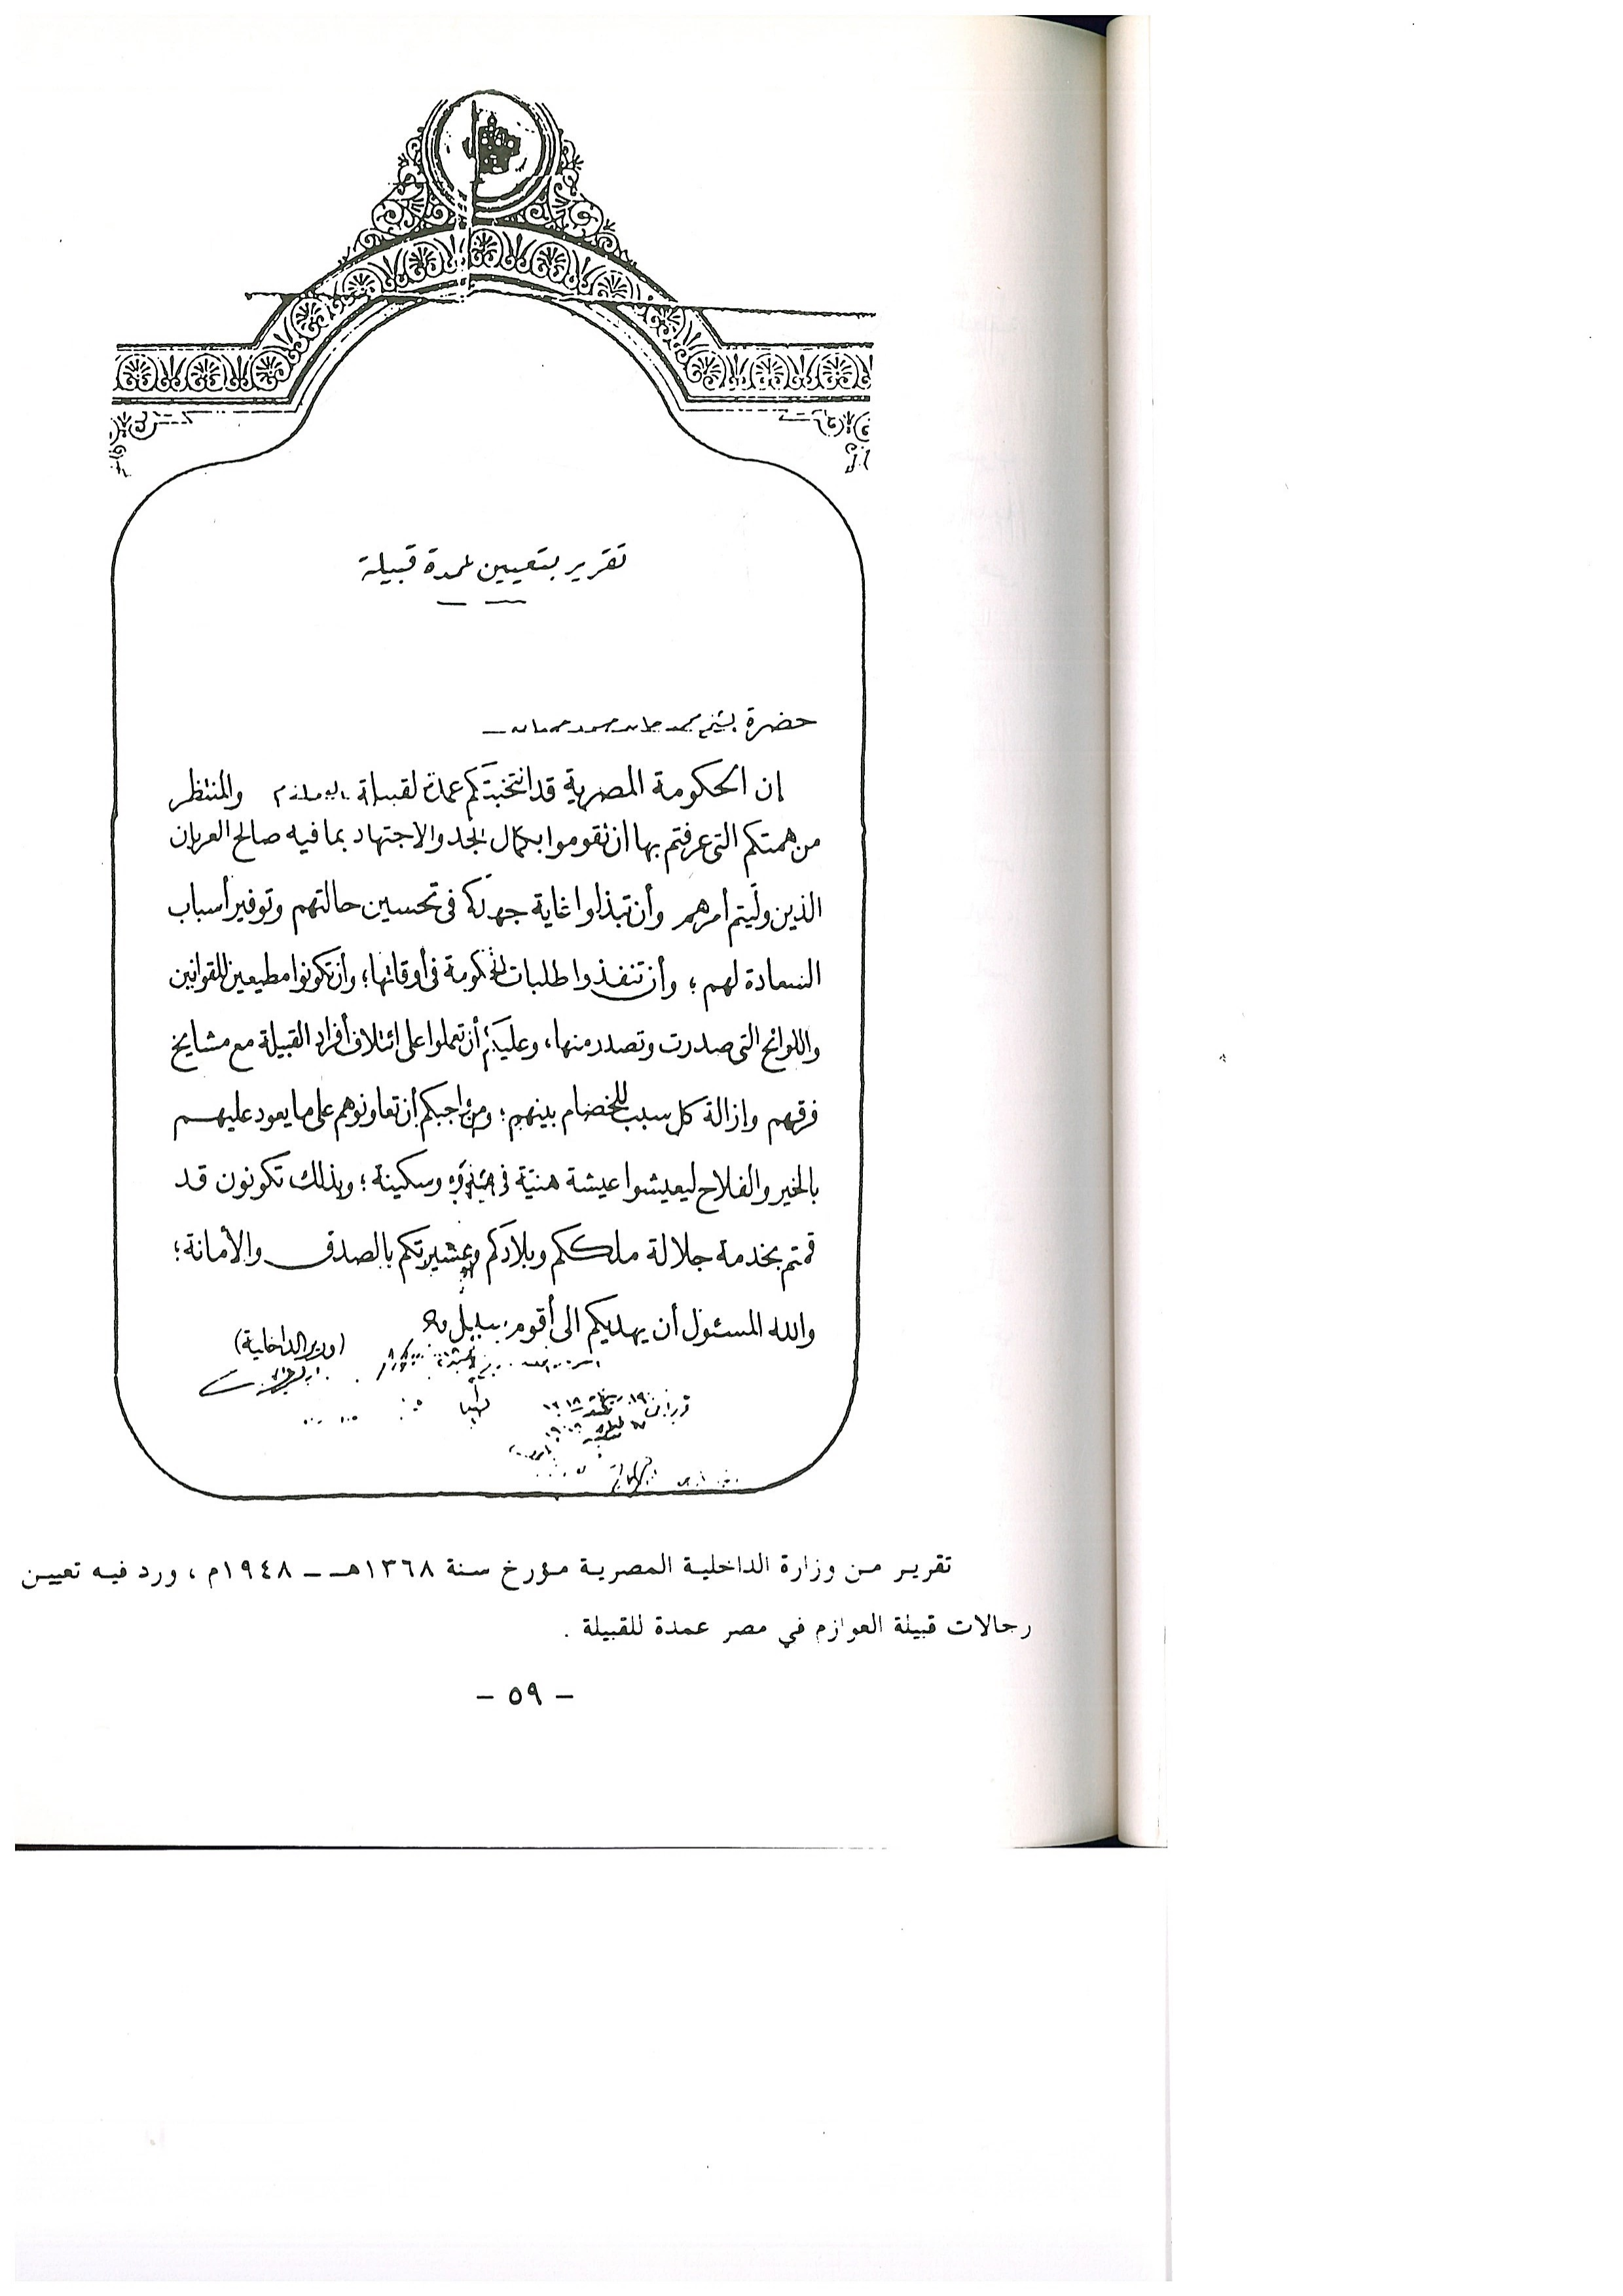 تقرير بتعيين عمدة قبيلة
حضرة الشيخ محمد
إن الحكومة المصرية قد انتخبتكم عمدة لقبيلة العوازم والمنتظر
من همتكم التى عرفتم بها ان تقوموا بكمال الجد والاجتهاد بما فيه صالح العربان
الذين وليتم أمرهم وأن تبذلوا غاية جهدكم فى تحسين حالتهم وتوفير أسباب
السعادة لهم ؛ وأن تنفذوا طلبات الحكومة فى أوقاتها ؛ وأن تكونوا مطيعين للقوانين
واللوائح التى صدرت وتصدر منها ، وعليكم أن تعملوا على ائتلاف أفراد القبيلة مع مشايخ
فرقهم وإزالة كل سبب للخصام بينهم ؛ ومن واجبكم أن تعاونوهم على ما يعود عليهم
بالخير والفلاح ليعيشوا عيشة هنية فى وسكينة ؛ وبذلك تكونون قد
قمتم بخدمة جلالة ملككم وبلادكم وعشيرتكم بالصدق والأمانة ؛
والله المسئول أن يهديكم الى أقوم سبيل
(وزير الداخلية)
تقرير من وزارة الداخلية المصرية مؤرخ سنة ١٣٦٨هـ – ١٩٤٨م ، ورد فيه تعيين
رجالات قبيلة العوازم في مصر عمدة للقبيلة .
– ٥٩ –